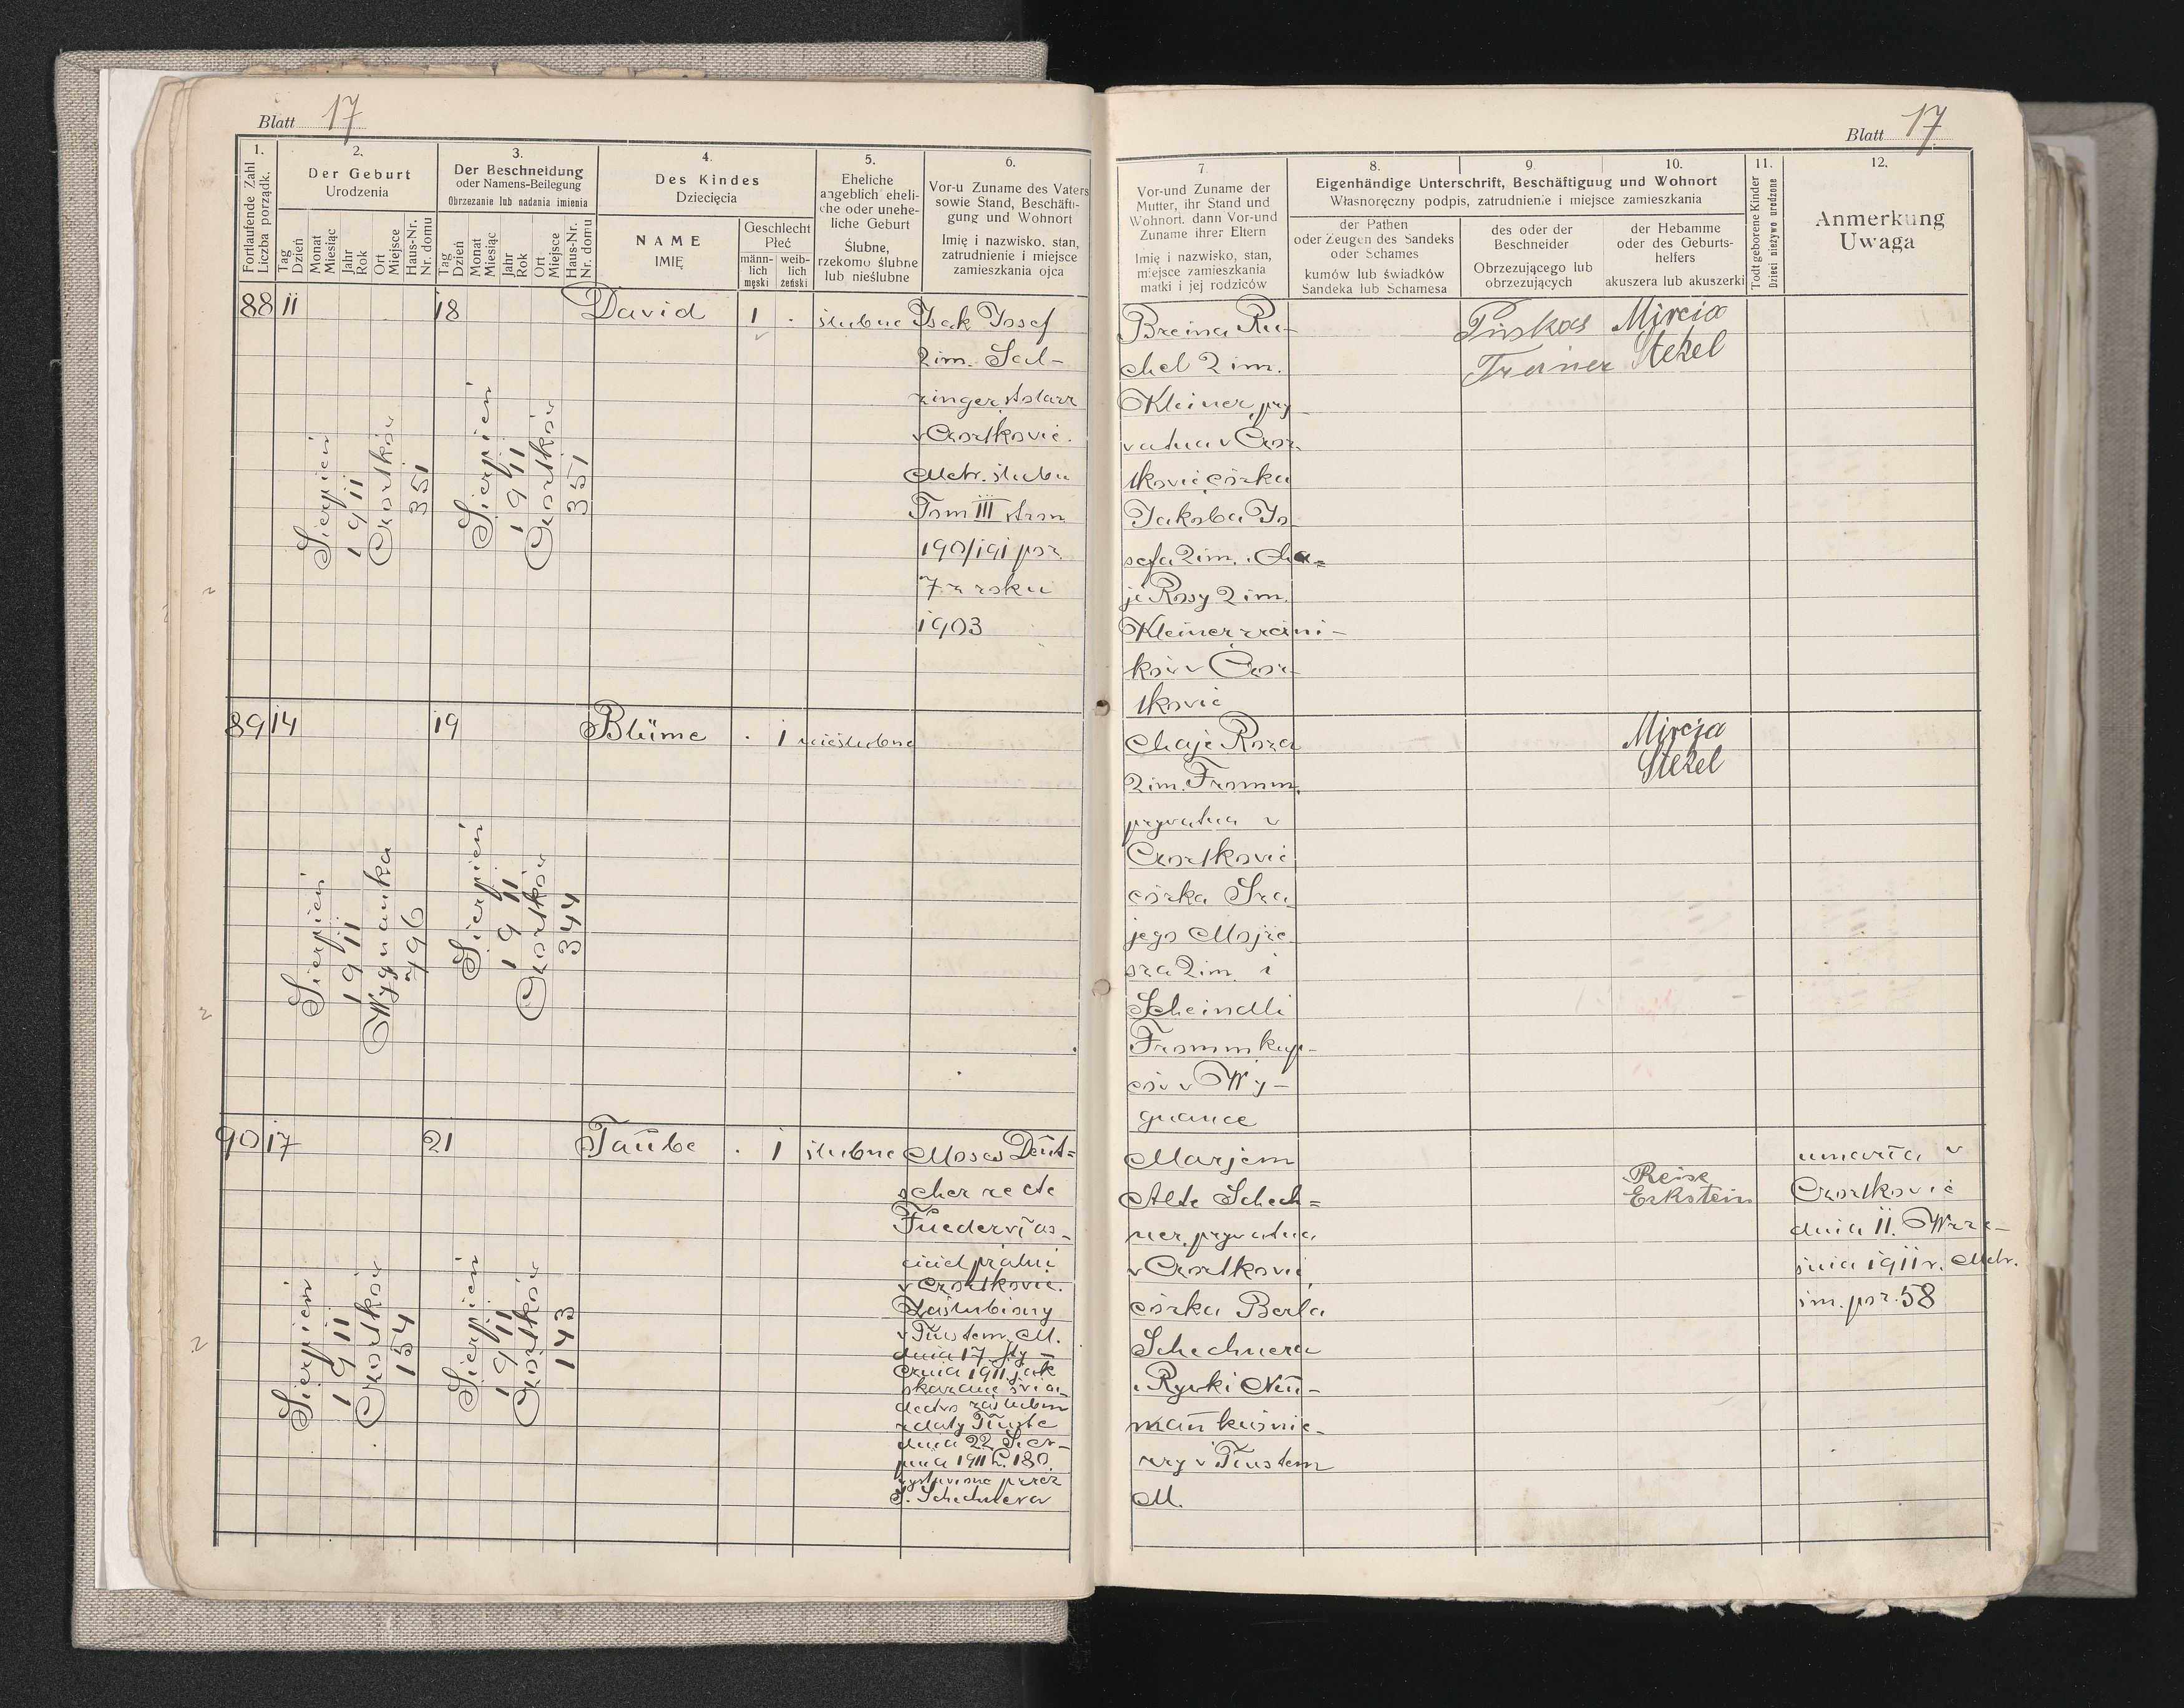 Blatt 17
1.
Fortlaufende Zahl
Liczba porządk.
2.
Der Geburt
Urodzenia
Tag
Dzień
Monat
Miesiąc
Jahr
Rok
Ort
Miejsce
Haus-Nr.
Nr. domu
3.
Der Beschneidung
oder Namens-Beilegung
Obrzezanie lub nadania imienia
Tag
Dzień
Monat
Miesiąc
Jahr
Rok
Ort
Miejsce
Haus-Nr.
Nr. domu
4.
Des Kindes
Dziecięcia
NAME
IMIĘ
Geschlecht
Płeć
männ-
lich
męski
weib-
lich
żeński
5.
Eheliche
angeblich eheli-
che oder unehe-
liche Geburt
Ślubne,
rzekomo ślubne
lub nieślubne
6.
Vor-u Zuname des Vaters
sowie Stand, Beschäfti-
gung und Wohnort
Imię i nazwisko, stan,
zatrudnienie i miejsce
zamieszkania ojca
88
11
Sierpień
1911
Czortków
351
18
Sierpień
1911
Czortków
351
David
1
.
ślubne
Isak Josef
2 im. Sal-
zinger, stolarz
v Czortkovie.
Metr. ślubu
Tom III stron
190/191 poz.
7 z roku
1903
89
14
Sierpień
1911
Wygnanka
496
19
Sierpień
1911
Czortków
344
Blüme
.
1
nieślubne
90
17
Sierpień
1911
Czortków
154
21
Sierpień
1911
Czortków
143
Taŭbe
.
1
ślubne
Moses Deŭt=
scher recte
Fŭeder vłas-
ciciel pralni
v Czortkovie.
Zaślubiony
v Tŭustem M.
dnia 17 Sty-
cznia 1911 jak
skazanie świa-
dectvo zaślubin
z daty Tŭuste
dnia 22 Sier-
pnia 1911 L. 180.
vystavione przez
S. Schechnera
Blatt 17
7
Vor-und Zuname der
Mutter, ihr Stand und
Wohnort, dann Vor-und
Zuname ihrer Eltern
Imię i nazwisko, stan,
miejsce zamieszkania
matki i jej rodziców
8.
9.
10.
Eigenhändige Unterschrift, Beschäftiguug und Wohnort
Własnoręczny podpis, zatrudnienie i miejsce zamieszkania
der Pathen
oder Zeugen des Sandeks
oder Schames
kumów lub świadków
Sandeka lub Schamesa
des oder der
Beschneider
Obrzezującego lub
obrzezujących
der Hebamme
oder des Geburts-
helfers
akuszera lub akuszerki
11.
Todt geborene Kinder
Dzieci nieżywo urodzone
12.
Anmerkung
Uwaga
Breina Ru-
chel 2 im.
Kleiner, pry-
vatna v Czor-
tkovie, córka
Jakoba Jo-
sefa 2 im. i Cha=
je Rosy 2 im.
Kleiner rzeźni-
ków v Czor-
tkovie
Pinkas
Treiner
Mircia
Stekel
Chaje Roza
2 im. Fromm,
pryvatna v
Czortkovie
córka Sra-
jego Mojże-
sza 2 im i
Scheindli
Fromm kup-
ców v Wy-
gnance
Mircja
Stekel
Marjem
Alte Schech=
ner, pryvatna
v Czortkovie,
córka Berla
Schechnera
i Ryvki Neŭ-
mañ kuśnie-
rzy v Tŭustem
M.
Reise
Eckstein
umarła v
Czortkovie
dnia 11. Wrze-
śnia 1911 r. Metr.
śm. poz. 58